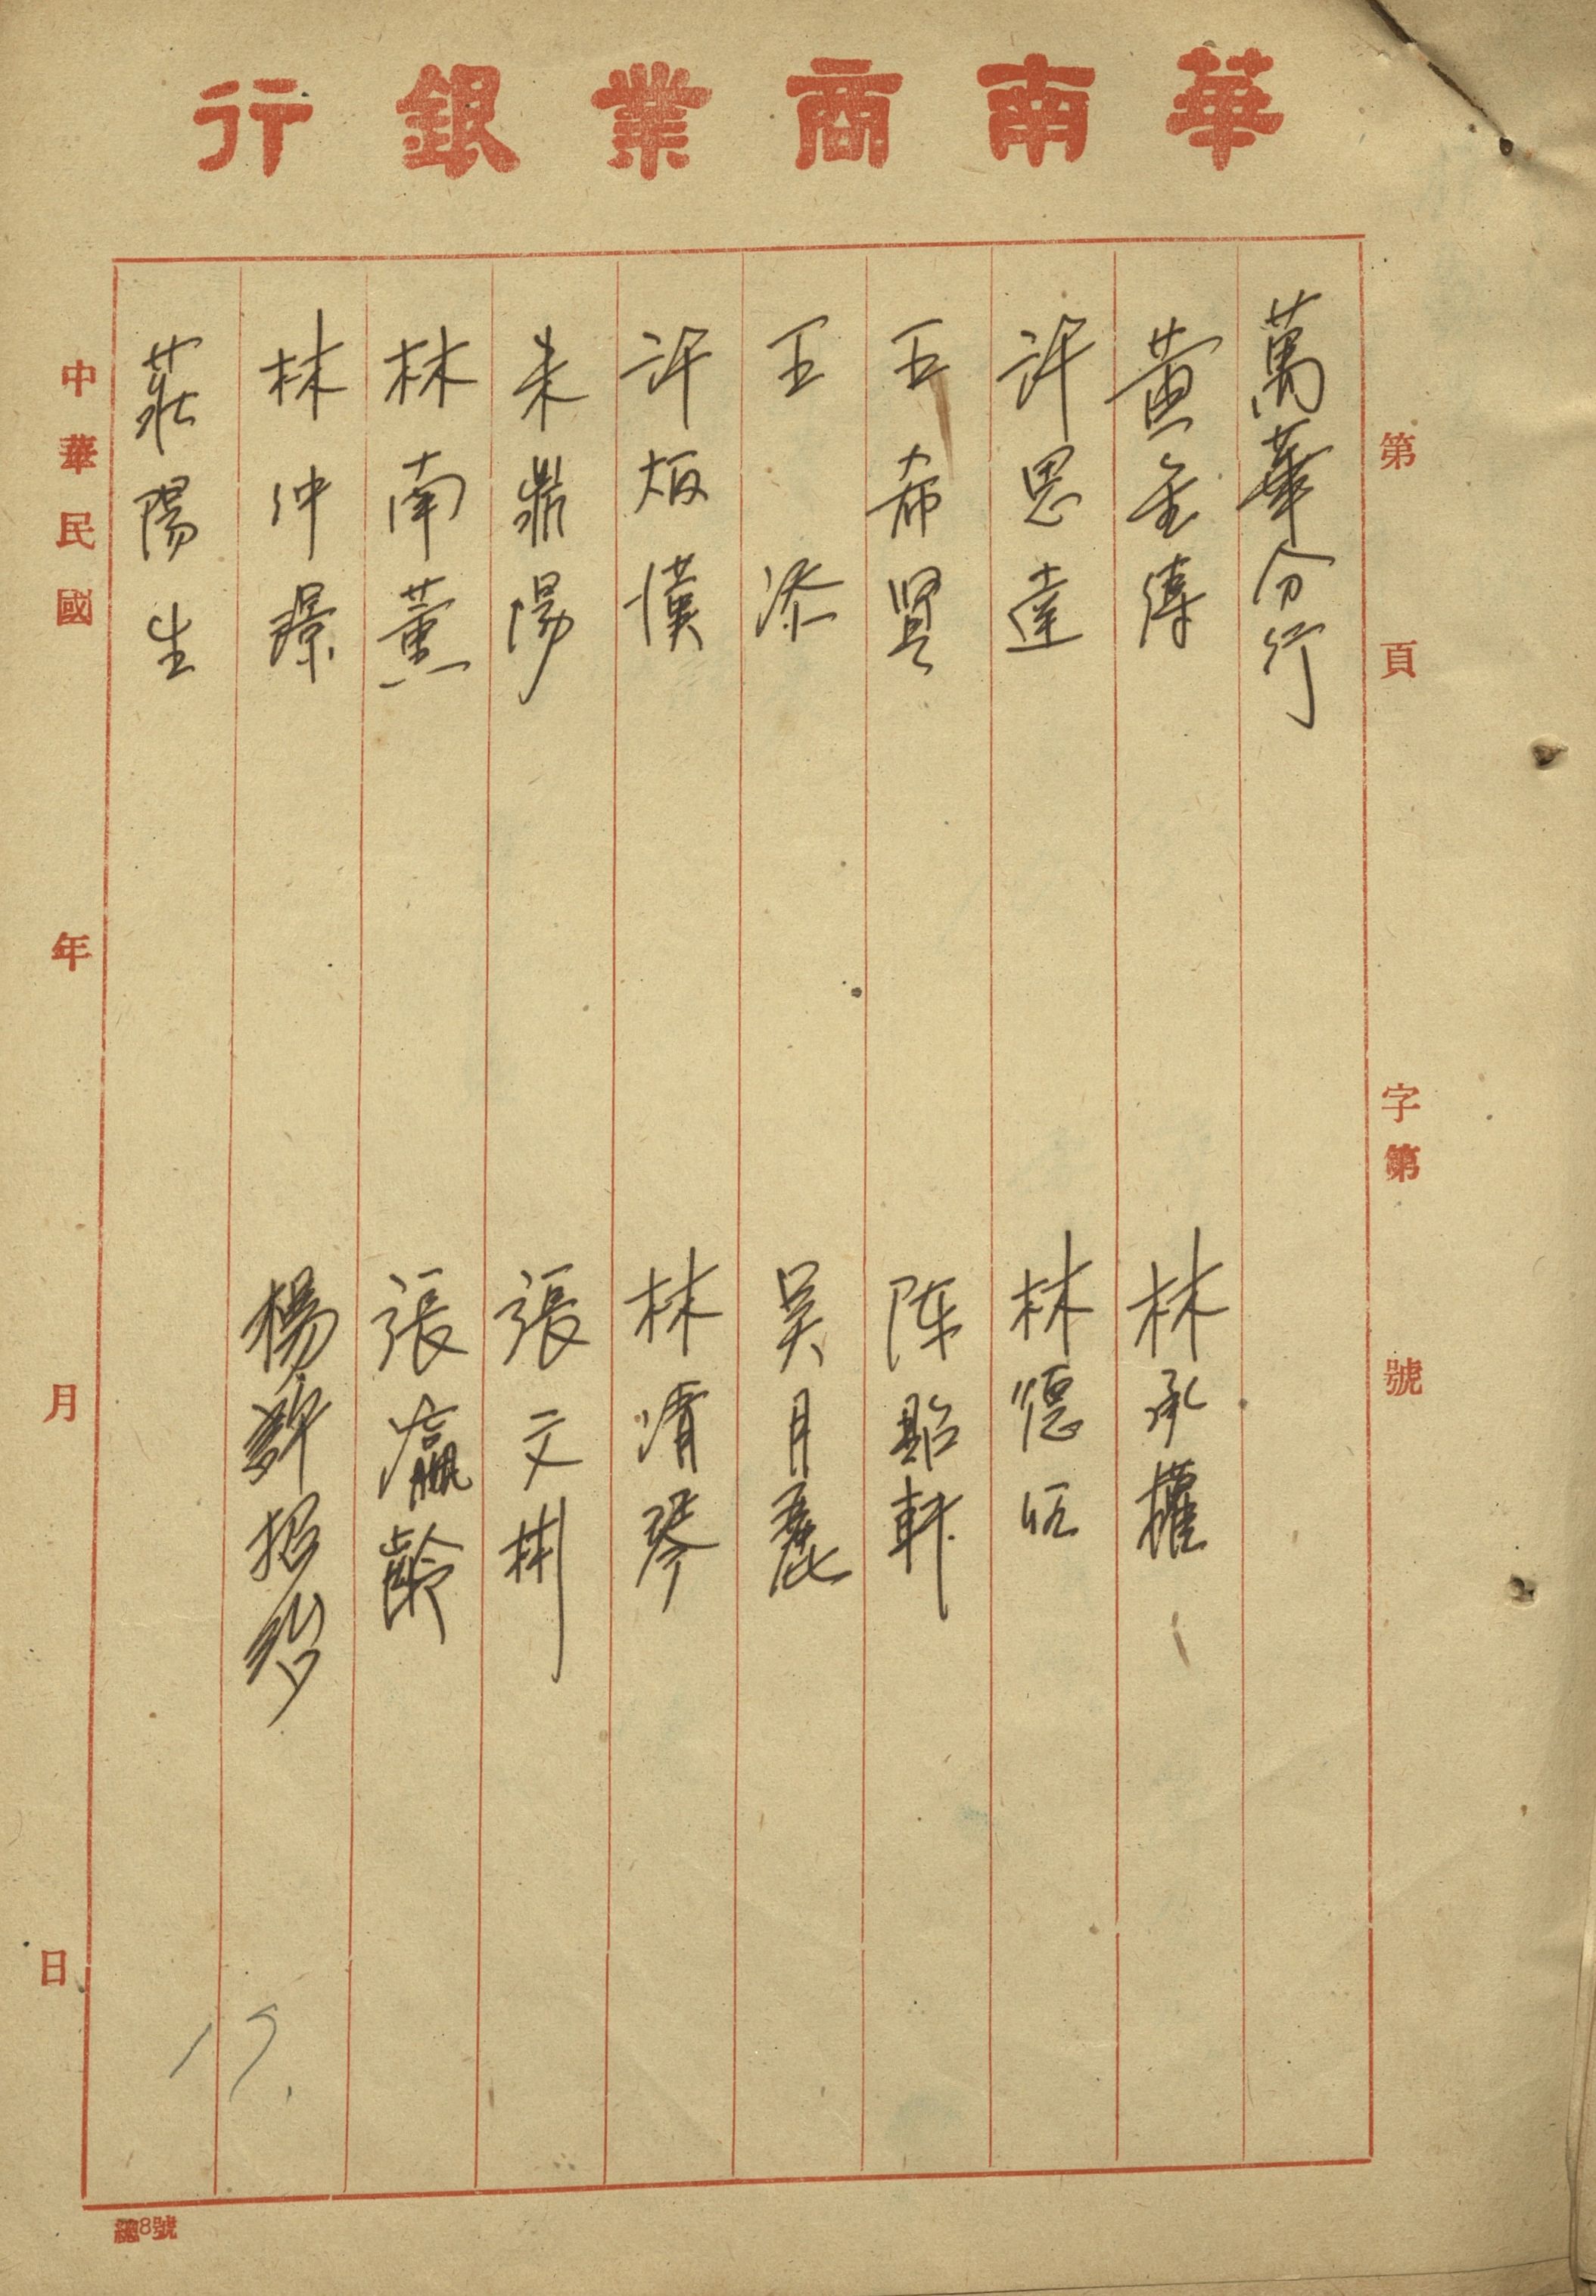 華南商業銀行
第 頁 字第 號
萬華分行
黃金傳 林承權
許思達 林德
王希賢 陳 軒
王添 吳月麗
許炳漢 林清琴
朱鼎陽 張文彬
林南薰 張瀛齡
林仲璟 楊許招
莊陽生
17.
中華民國 年 月 日
總8號